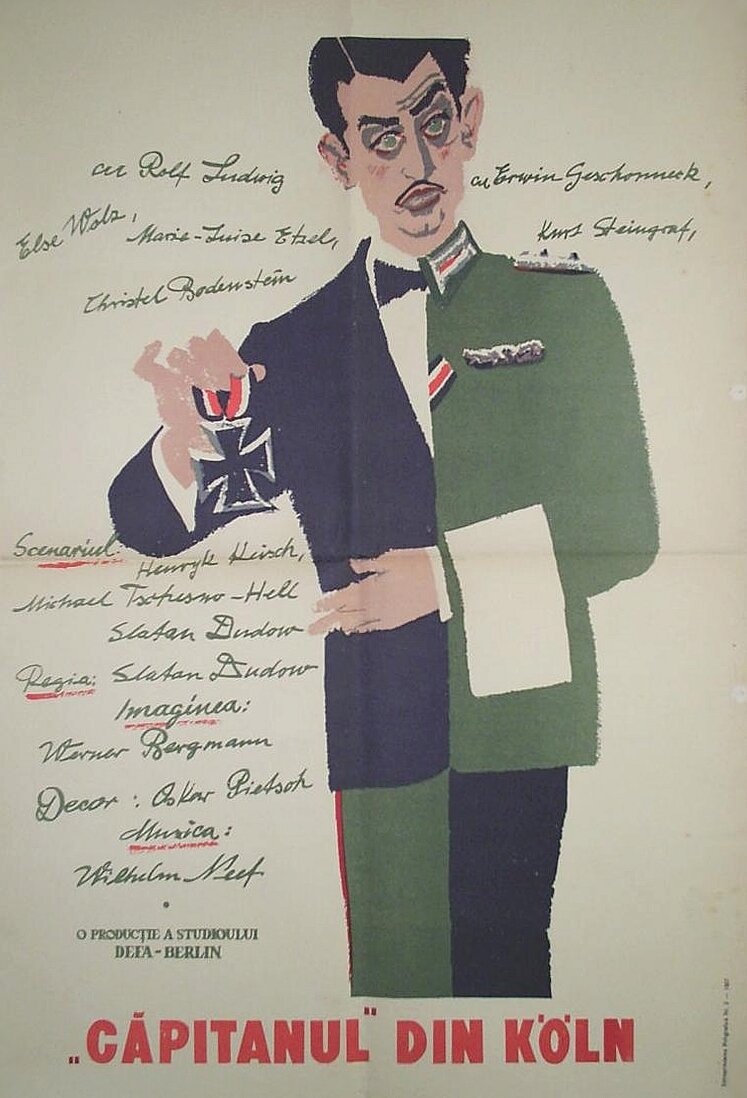 cu Rolf Ludwig
cu Erwin Geschonneck,
Else Wolz,
Marie-Luise Etzel,
Kurt Steingraf,
Christel Bodenstein
Scenariul:
Henryk Keisch,
Michael Tschesno-Hell
Slatan Dudow
Regia: Slatan Dudow
Imaginea:
Werner Bergmann
Decor: Oskar Pietsch
Muzica:
Wilhelm Neef
O PRODUCȚIE A STUDIOULUI
DEFA-BERLIN
„CĂPITANUL" DIN KÖLN